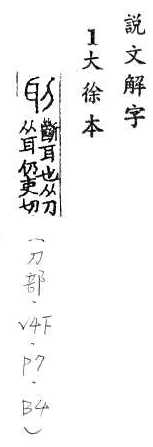 説文解字
1大徐本
刵 斷耳也从刀
从耳仍吏切
(刀部、V4F、P7、B4)